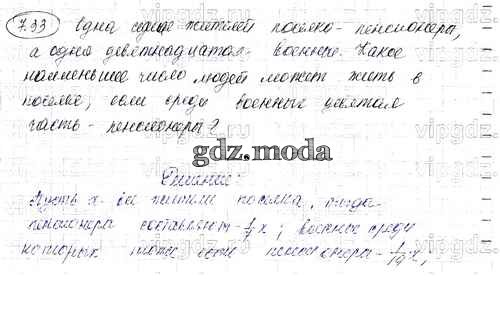 7.33 Одна седьмая жителей поселка - пенсионеры,
а одна девятнадцатая - военные. Какое
наименьшее число людей может жить в
поселке, если среди военных девятая
часть - пенсионеры?
gdz.moda
Решение:
Пусть x - все жители поселка, тогда
пенсионера составляют - 1/7 x; военных среди
которых тоже есть пенсионеры - 1/19 x;